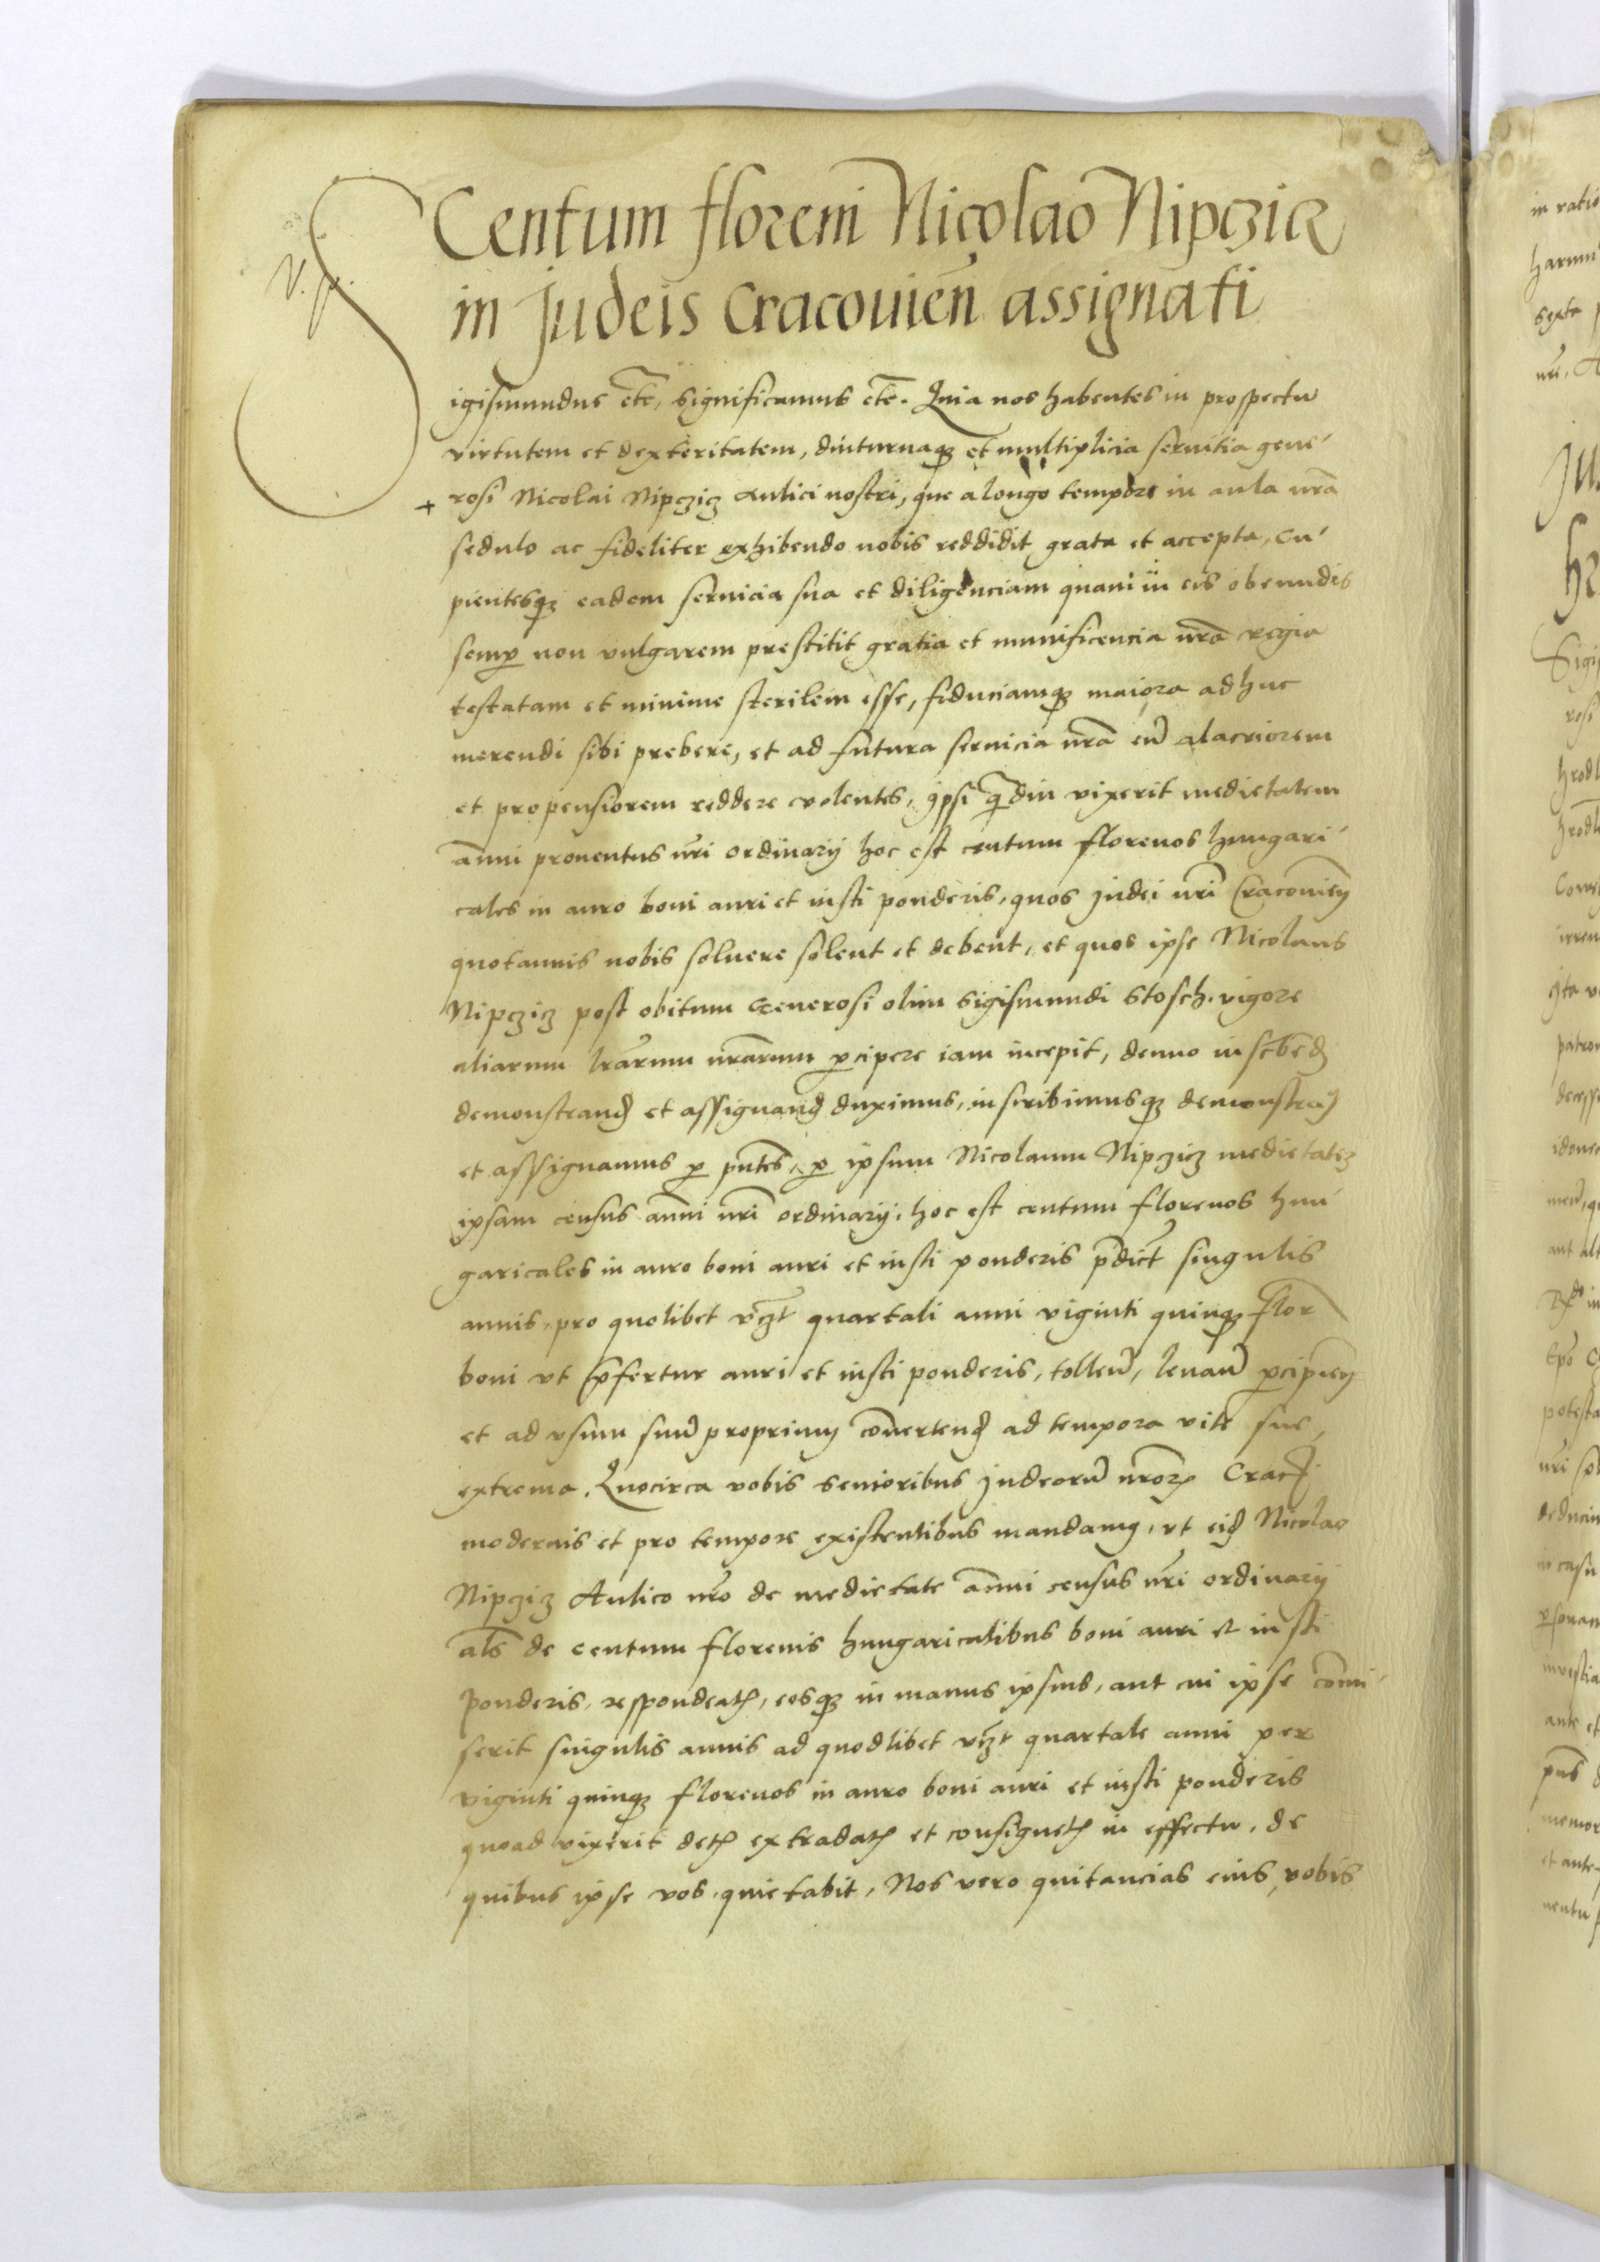 Centum floreni Nicolao Nipczicz
in Judeis Cracovien̄ assignati
V. p.
Sigismundus etc̄, significamus etc̄. Quia nos habentes in prospectu
virtutem et dexteritatem, diuturnaq3 et multiplicia servitia gene
+ rosi Nicolai Nipczicz Aulici nostri, que a longo tempore in aula nr̄a
sedulo ac fideliter exhibendo nobis reddidit grata et accepta, Cu
pientesq3 eadem servicia sua et diligenciam quam in eis obeundis
semp̱ non vulgarem prestitit gratia et munificencia nr̄a regia
testatam et minime sterilem esse, fiduciamq3 maiora adhuc
merendi sibi prebere, et ad futura servicia nr̄a eū alacriorem
et propensiorem reddere volentes, ip̄si q̄diu vixerit medietatem
ann̄i proventus nr̄i ordinarij hoc est centum florenos hungari
cales in auro boni auri et iusti ponderis, quos Judei nr̄i Cracovien̄
quotannis nobis soluere solent et debent, et quos ipse Nicolaus
Nipczicz post obitum Generosi olim Sigismundi Stosch, vigore
aliarum lr̄arum nr̄arum p̱cipere iam incepit, denuo inscrib̄end
demonstrand et assignand duximus, inscribimusq3 demonstram9
et assignamus p̱ pn̄tes, p̱ ipsum Nicolaum Nipczicz medietate3
ipsam census ann̄i nr̄i ordinarij, hoc est centum florenos hun
garicales in auro boni auri et iusti ponderis p̄dict singulis
annis, pro quolibet vz̄t quartali anni viginti quinq3 flor
boni vt p̄fertur auri et iusti ponderis, tollen̄, levan̄ p̱cipien̄
et ad vsum suū proprium con̄vertend ad tempora vite sue,
extrema. Quocirca vobis senioribus Judeorū nr̄orum Crac
modernis et pro tempore existentibus mandam9, vt eid Nicolao
Nipczicz Aulico nr̄o de medietate ann̄i census nr̄i ordinarij
al̄s de centum florenis hungaricalibus boni auri et iusti
ponderis, respondeatis, eosq3 in manus ipsius, aut cui ipse com̄i
serit singulis annis ad quodlibet vz̄t quartale anni per
viginti quinq3 florenos in auro boni auri et iusti ponderis
quoad vixerit detis extradatis et consignetis in effectu, de
quibus ipse vos quietabit, Nos vero quitancias eius, vobis